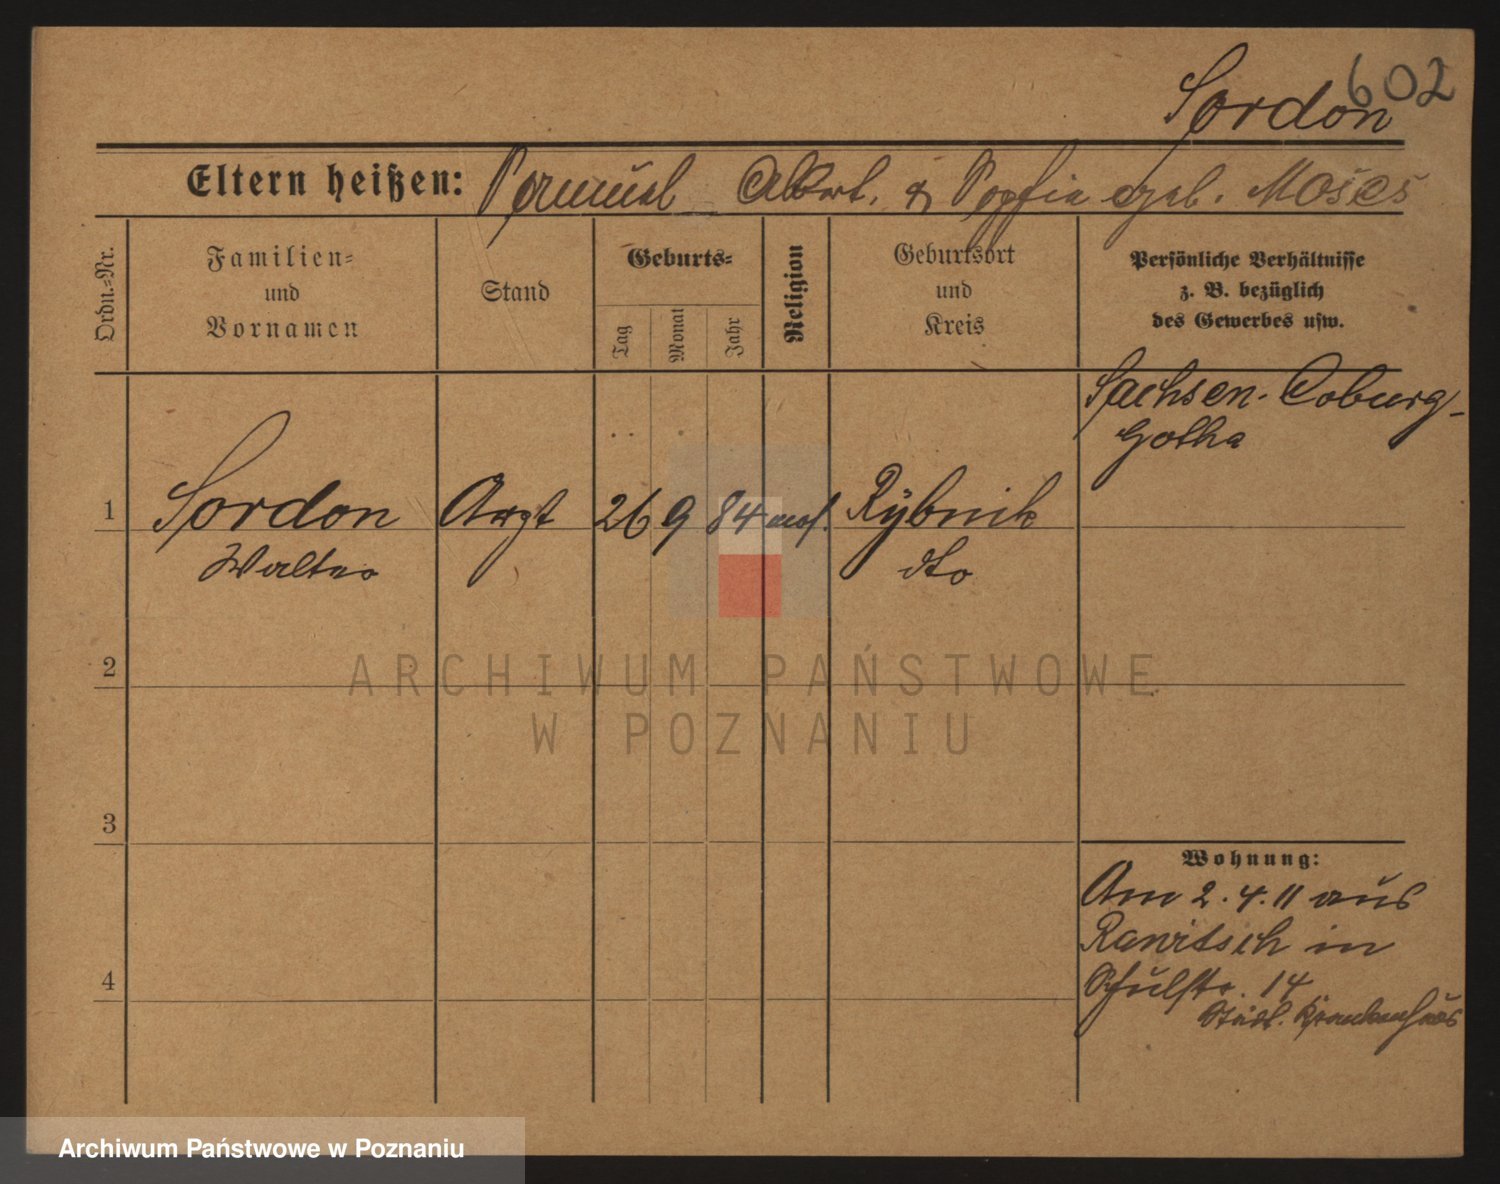 602
Sordon
Eltern heißen: Samuel Albert. & Sophie geb. Moses
Ordn.=Nr.
Familien=
und
Vornamen
Stand
Geburts=
Tag
Monat
Jahr
Religion
Geburtsort
und
Kreis
Persönliche Verhältnisse
z. B. bezüglich
des Gewerbes usw.
Sachsen-Coburg-
Gotha
1 Sordon Arzt 26 9 84 mos. Rybnik
Walter dto
2
3
4
Wohnung:
Am 2.4.11 aus
Rawitsch in
Schulstr. 14
Städt. Krankenhaus
ARCHIWUM PAŃSTWOWE
W POZNANIU
Archiwum Państwowe w Poznaniu